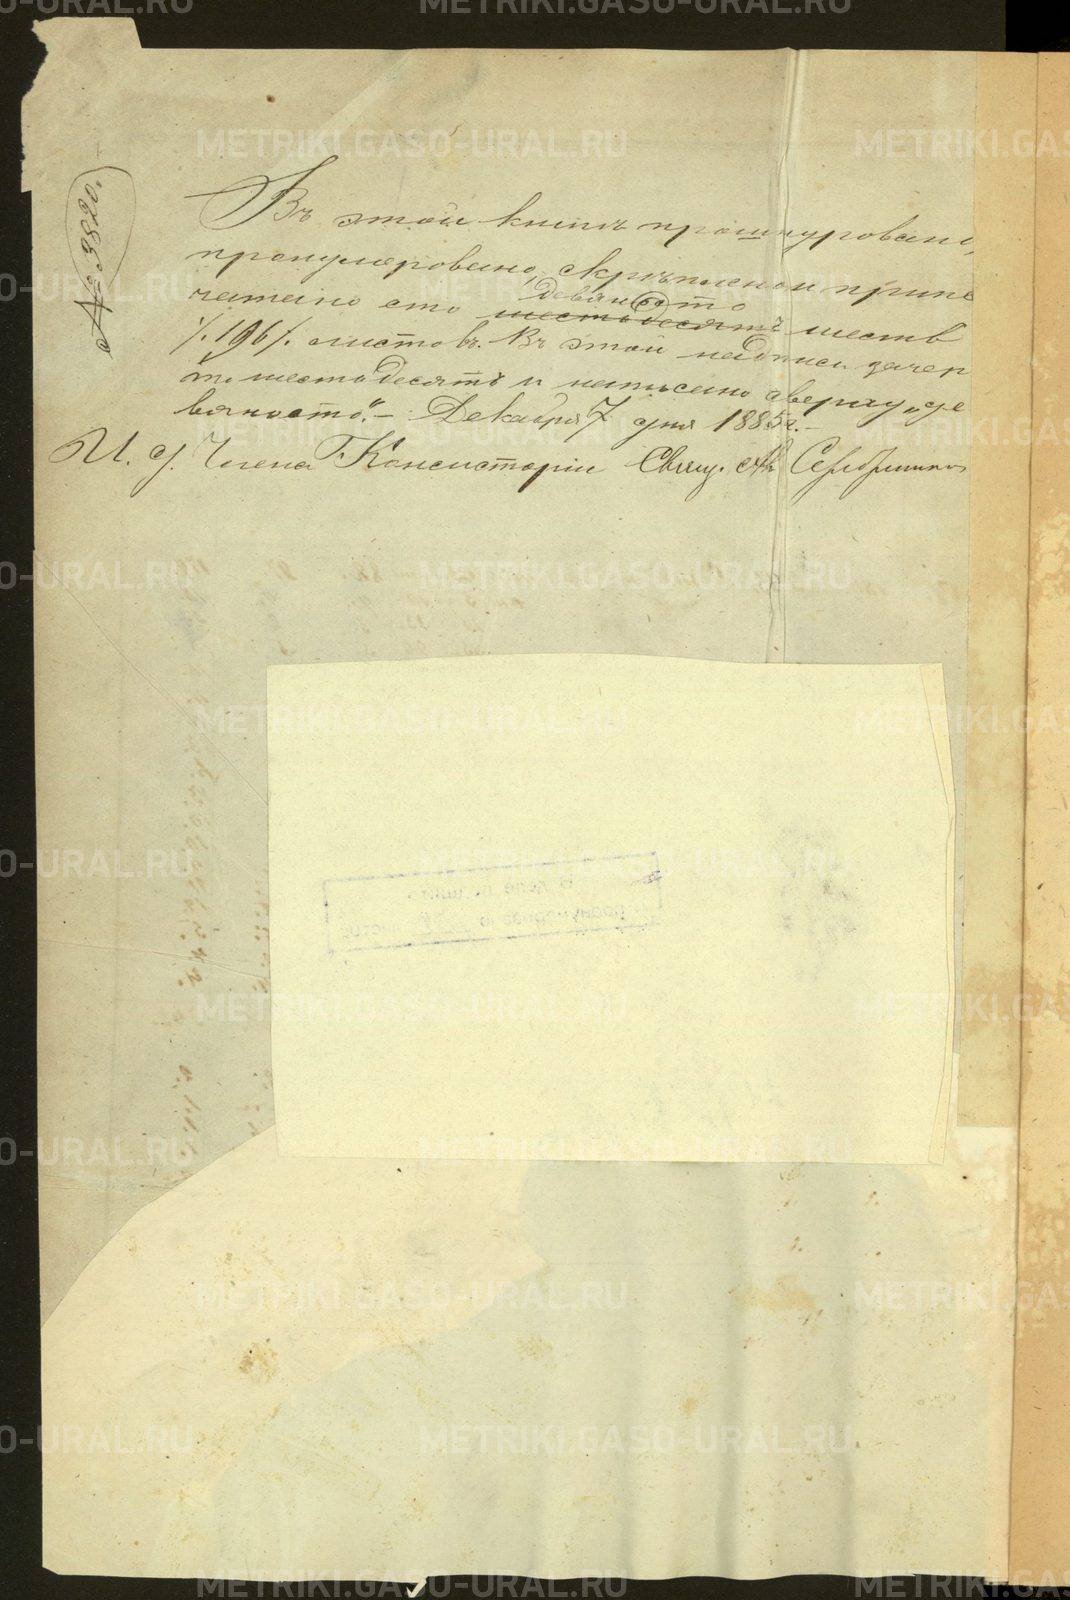 № 3820.
Въ этой книгѣ прошнуровано,
пронумеровано, скрѣпленои припе
девяносто
чатано сто шестьдесятъ шесть
/.196/. листовъ. Въ этой надписи зачер
то шестьдесятъ и написано сверху „де
вяносто“.- Декабря 7 дня 1885 г.-
И. д. Члена Консисторіи Свящ. Серебренников
METRIKI.GASO-URAL.RU